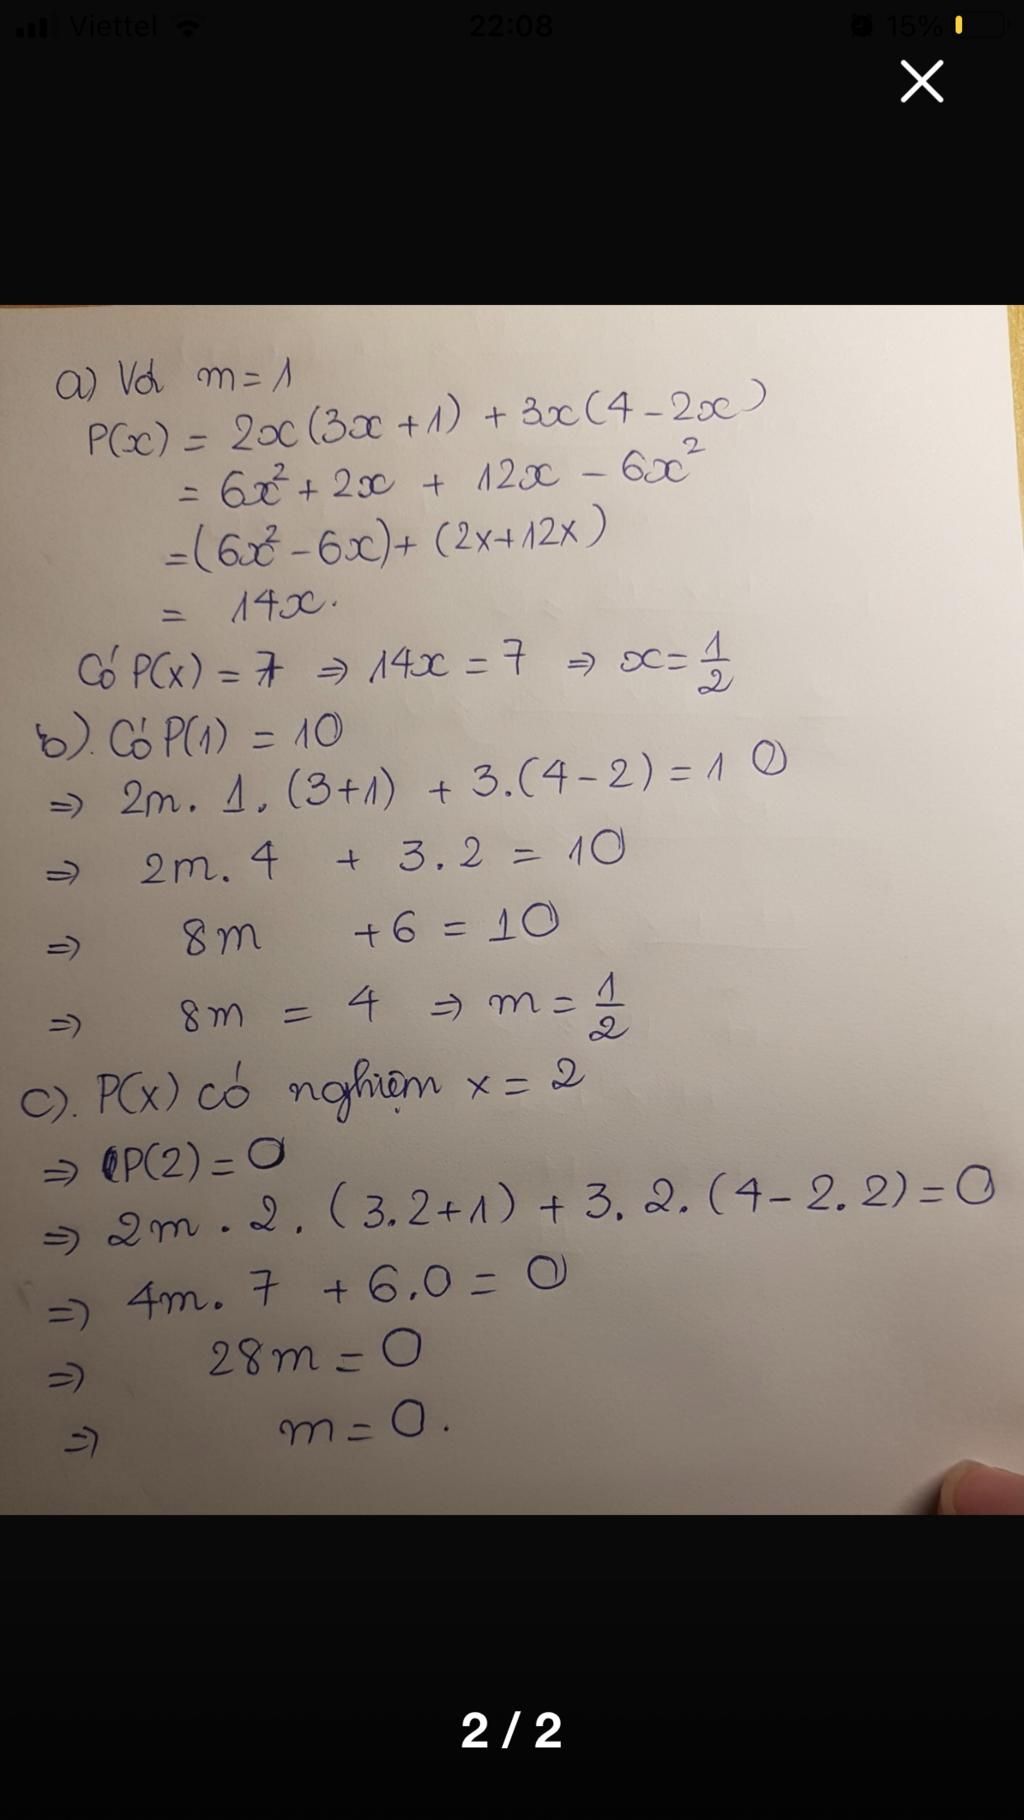 Viettel 22:08 15%
a) Với m = 1
P(x) = 2x(3x + 1) + 3x(4 - 2x)
= 6x² + 2x + 12x - 6x²
= (6x² - 6x) + (2x + 12x)
= 14x.
Có P(x) = 7 ⇒ 14x = 7 ⇒ x = 1/2
b). Có P(1) = 10
⇒ 2m. 1. (3+1) + 3.(4-2) = 10
⇒ 2m. 4 + 3.2 = 10
⇒ 8m + 6 = 10
⇒ 8m = 4 ⇒ m = 1/2
c). P(x) có nghiệm x = 2
⇒ P(2) = 0
⇒ 2m . 2. (3.2+1) + 3. 2. (4 - 2.2) = 0
⇒ 4m. 7 + 6.0 = 0
⇒ 28m = 0
⇒ m = 0.
2 / 2